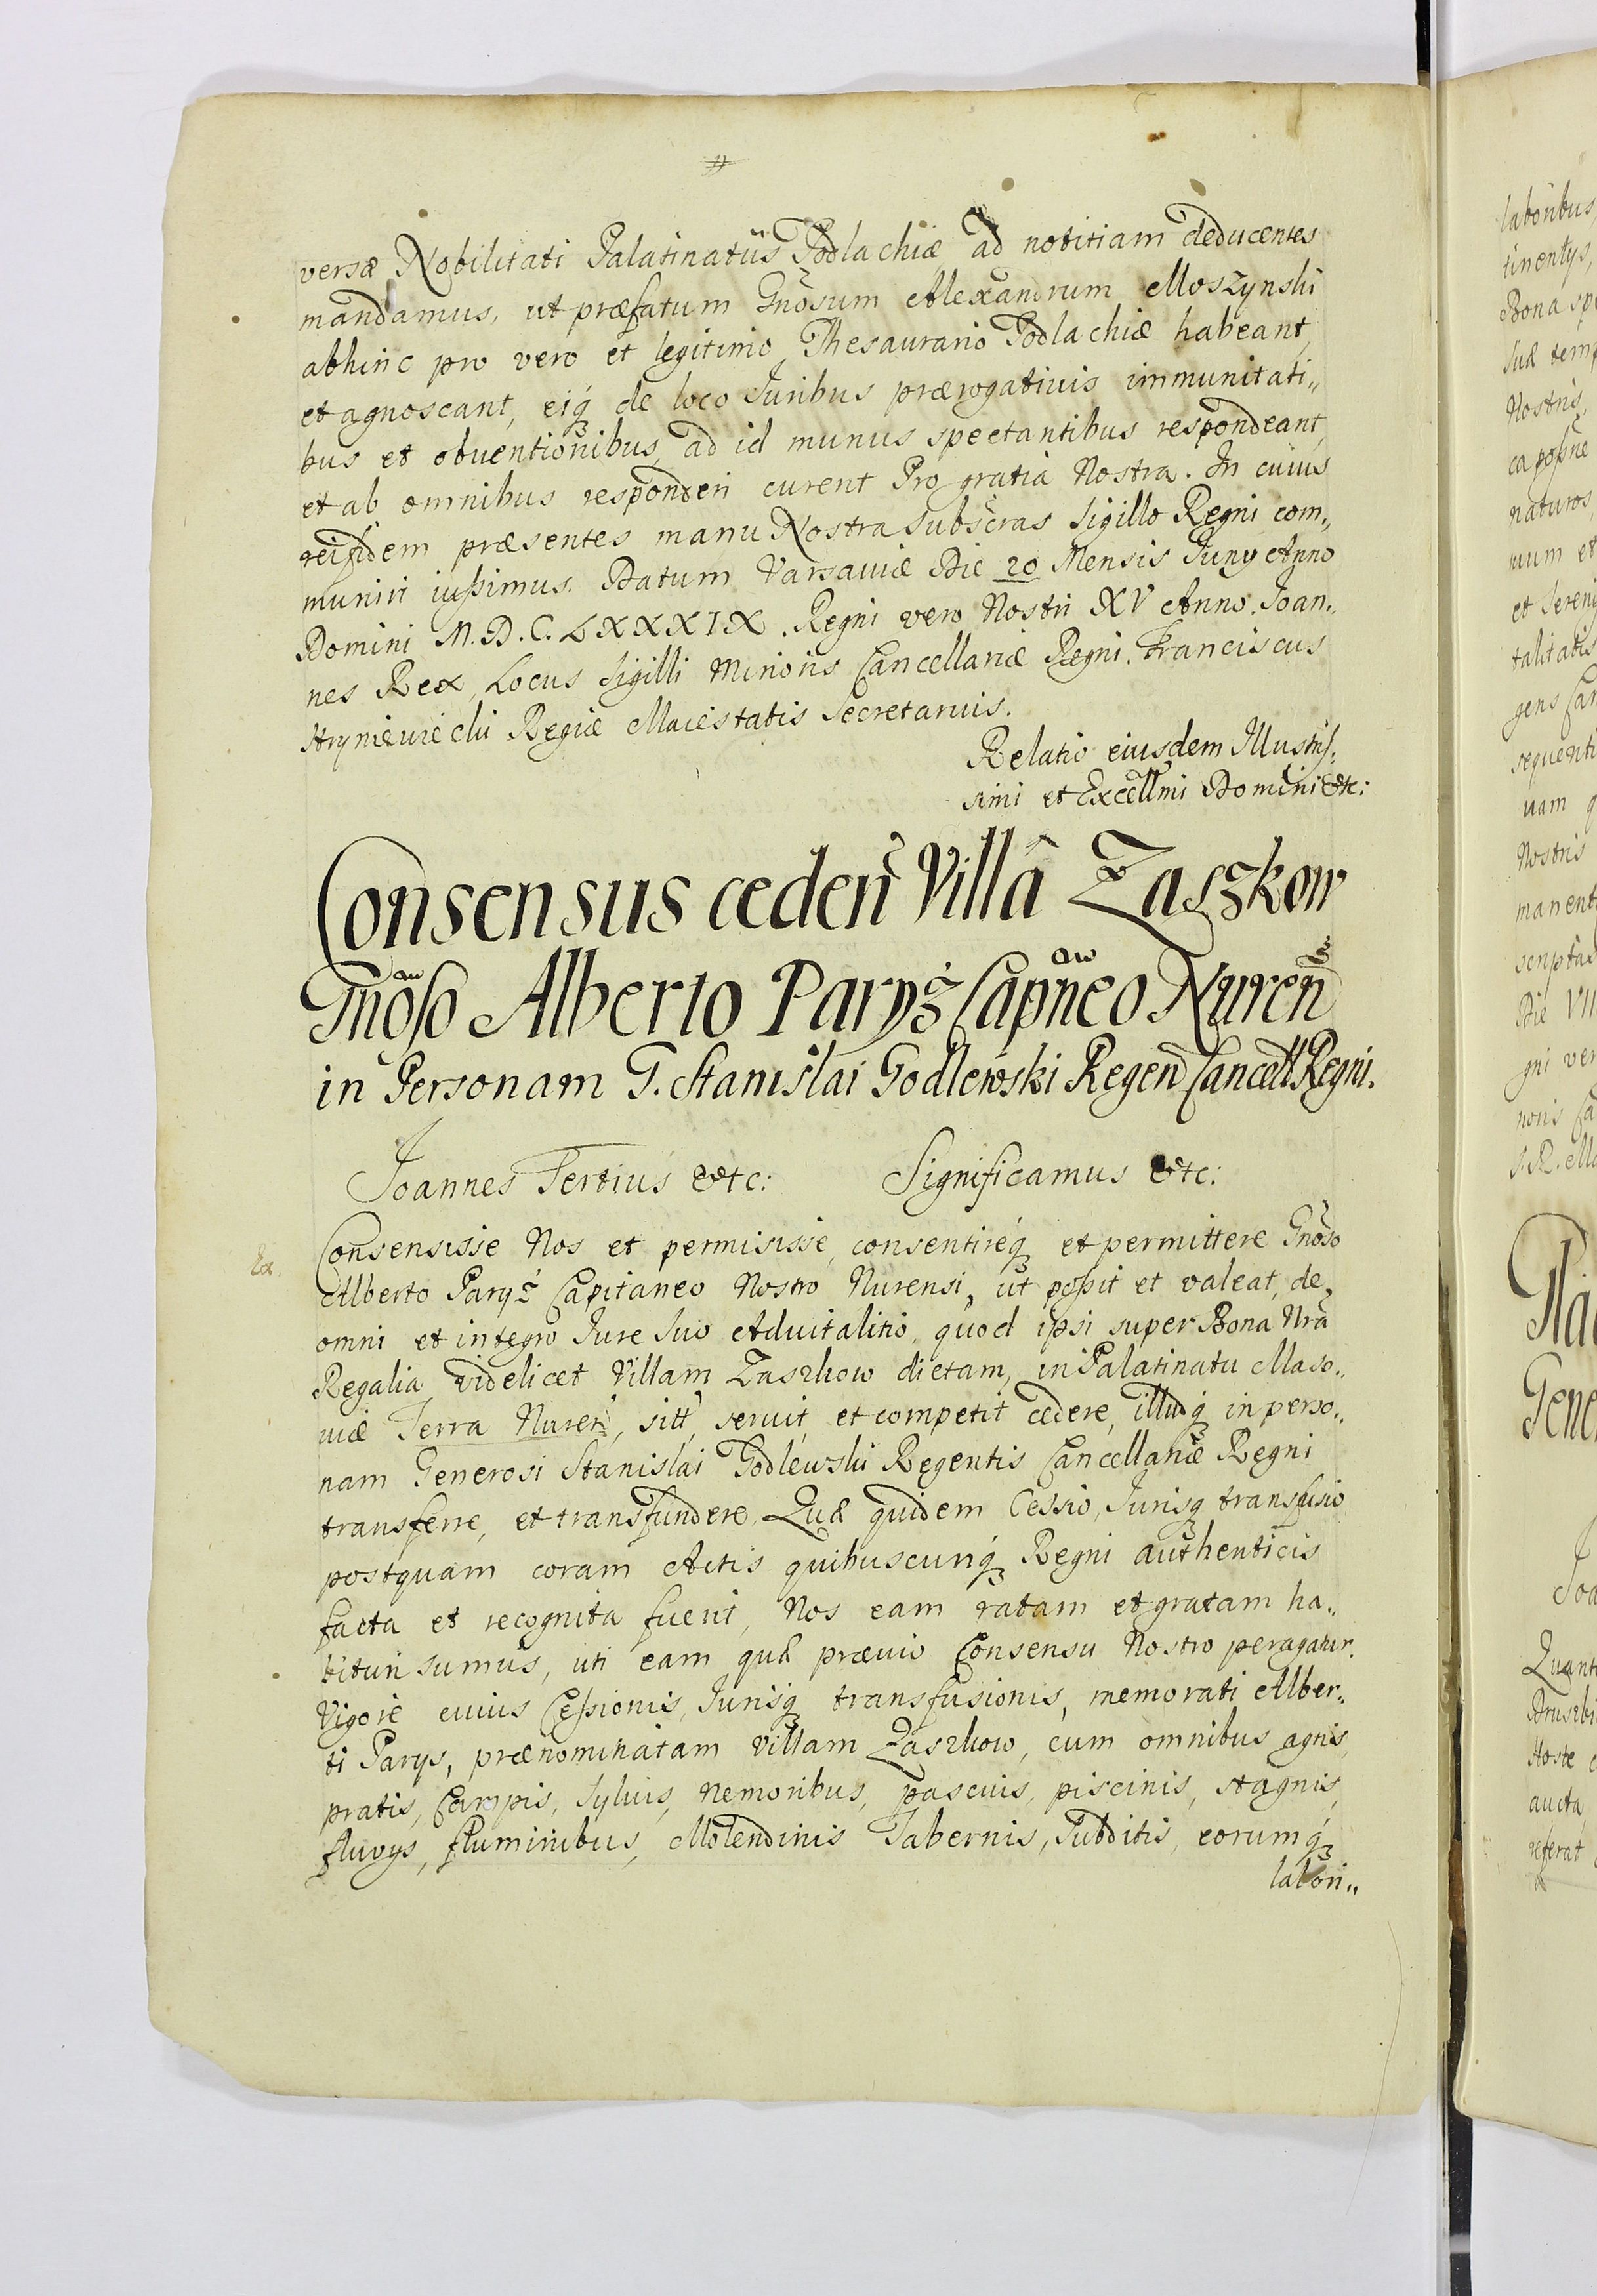 versæ Nobilitati Palatinatus Podlachiæ ad notitiam deducentes
mandamus, ut præfatum Gnosum Alexandrum Moszynski
abhinc pro vero et legitimo Thesaurario Podlachiæ habeant,
et agnoscant, eiq́ de loco Iuribus prærogativis immunitati„
bus et obventionibus, ad id munus spectantibus respondeant,
et ab omnibus responderi curent Pro gratia Nostra. In cuius
rei fidem præsentes manu Nostra subscras Sigillo Regni com„
muniri iussimus. Datum Varsaviæ Die 20 Mensis Juny Anno
Domini M.D.C.LXXXIX. Regni vero Nostri XV Anno. Joan„
nes Rex, Locus Sigilli Minoris Cancellariæ Regni. Franciscus
Regiæ Maiestatis Secretarius.
Relatio eiusdem Illustris„
simi et Excellmi Domini etc:
Consensus ceden Villã Zaszkow
Gnoso Alberto Paryż Capneo Nuren
in Personam G. Stanislai Godlewski Regen Cancell Regni.
Joannes Tertius etc: Significamus etc:
Ex.
Consensisse Nos et permisisse, consentireq́ et permittere Gnoso
Alberto Paryż Capitaneo Nostro Nurensi, ut possit et valeat, de
omni et integro Iure suo Advitalitio, quod ipsi super Bona Nra
Regalia videlicet Villam Zaszkow dictam, in Palatinatu Maso„
viæ Terra Nuren, sitt, servit, et competit cedere, illudq́ in perso„
nam Generosi Stanislai Godlewski Regentis Cancellariæ Regni
transferre, et transfundere. Quæ quidem Cessio, Iurisq́ transfusio
postquam coram Actis quibuscunq́ Regni authenticis
facta et recognita fuerit, Nos eam ratam et gratam ha„
bituri sumus, uti eam quæ prævio Consensu Nostro peragatur.
Vigore cuius Cessionis, Iurisq́ transfusionis, memorati Alber„
ti Parys, prænominatam Villam Zaszkow, cum omnibus agris,
pratis, Campis, Sylvis, Nemoribus, pascuis, piscinis, stagnis,
fluvys, fluminibus, Molendinis Tabernis, Subditis, eorumq́
labori„